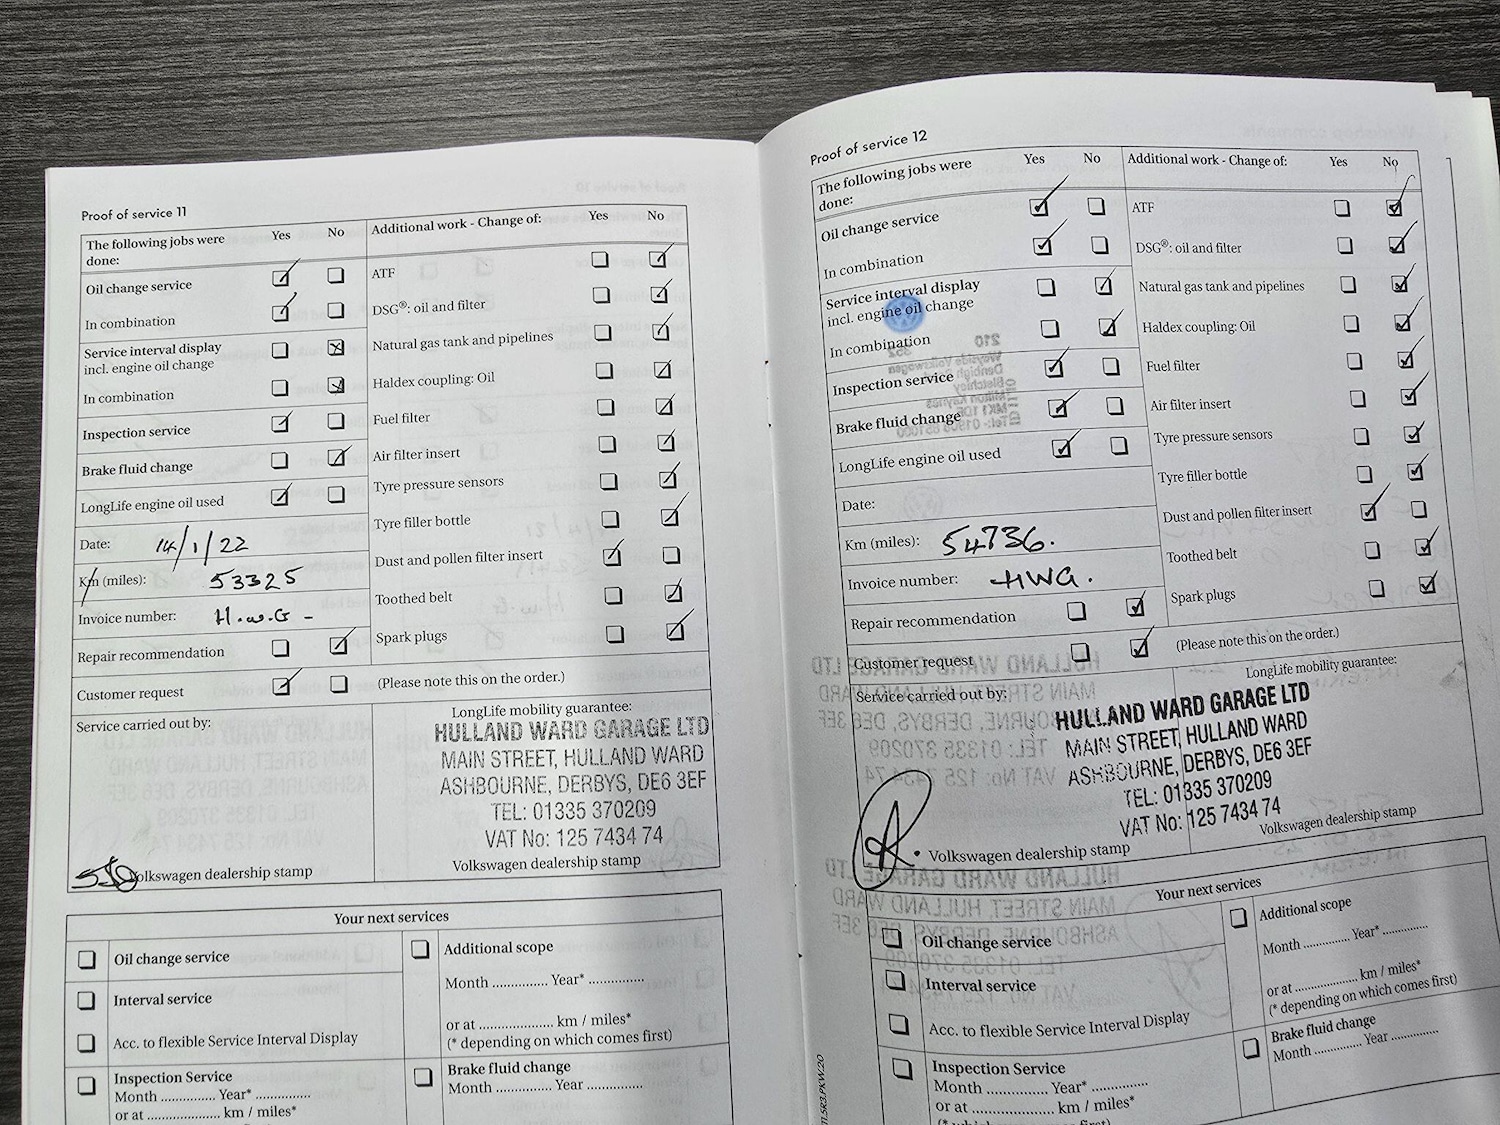 Proof of service 11
The following jobs were done: Yes No
Oil change service
In combination
Service interval display
incl. engine oil change
In combination
Inspection service
Brake fluid change
LongLife engine oil used
Date: 14/1/22
Km (miles): 53325
Invoice number: H.W.G -
Repair recommendation
Customer request
(Please note this on the order.)
Additional work - Change of: Yes No
ATF
DSG®: oil and filter
Natural gas tank and pipelines
Haldex coupling: Oil
Fuel filter
Air filter insert
Tyre pressure sensors
Tyre filler bottle
Dust and pollen filter insert
Toothed belt
Spark plugs
Service carried out by:
Volkswagen dealership stamp
LongLife mobility guarantee:
HULLAND WARD GARAGE LTD
MAIN STREET, HULLAND WARD
ASHBOURNE, DERBYS, DE6 3EF
TEL: 01335 370209
VAT No: 125 7434 74
Volkswagen dealership stamp
Your next services
Oil change service
Interval service
Acc. to flexible Service Interval Display
Inspection Service
Month .............. Year* ..............
or at .................... km / miles*
Additional scope
Month .............. Year* ..............
or at .................... km / miles*
(* depending on which comes first)
Brake fluid change
Month .............. Year ..............
Proof of service 12
The following jobs were
done: Yes No
Oil change service
In combination
Service interval display
incl. engine oil change
In combination
Inspection service
Brake fluid change
LongLife engine oil used
Date:
Km (miles): 54736.
Invoice number: HWG.
Repair recommendation
Customer request
(Please note this on the order.)
Additional work - Change of: Yes No
ATF
DSG®: oil and filter
Natural gas tank and pipelines
Haldex coupling: Oil
Fuel filter
Air filter insert
Tyre pressure sensors
Tyre filler bottle
Dust and pollen filter insert
Toothed belt
Spark plugs
Service carried out by:
Volkswagen dealership stamp
LongLife mobility guarantee:
HULLAND WARD GARAGE LTD
MAIN STREET, HULLAND WARD
ASHBOURNE, DERBYS, DE6 3EF
TEL: 01335 370209
VAT No: 125 7434 74
Volkswagen dealership stamp
Your next services
Oil change service
Interval service
Acc. to flexible Service Interval Display
Inspection Service
Month .............. Year* ..............
or at .................... km / miles*
Additional scope
Month .............. Year* ..............
or at .................... km / miles*
(* depending on which comes first)
Brake fluid change
Month .............. Year ..............